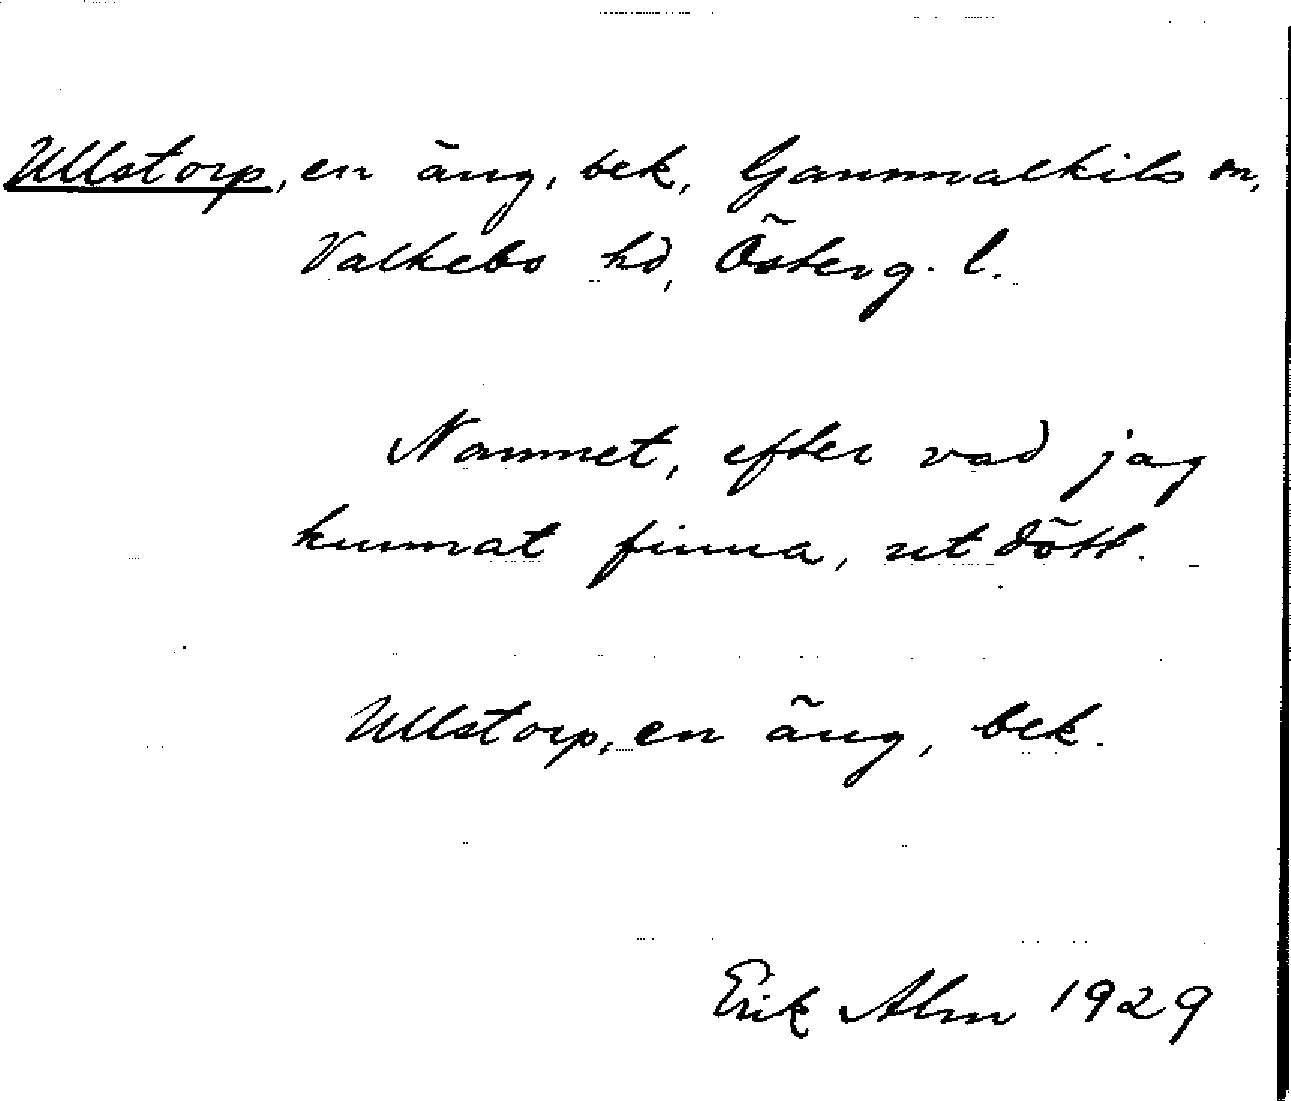 Ullstorp, en äng, bek, Gammalkils sn,
Valkebo hd, Österg. l.
Namnet, efter vad jag
kunnat finna, utdött.
Ullstorp, en äng, bek.
Erik Alm 1929